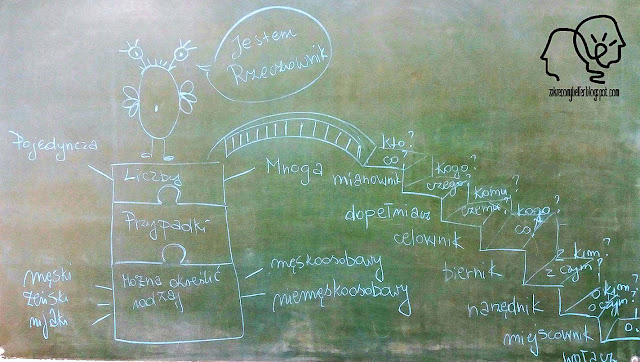 zakreconybelfer.blogspot.com
Jestem
Rzeczownik
Pojedyncza
Liczby
Mnoga
Przypadki
męski
żeński
nijaki
Można określić
rodzaj
męskoosobowy
niemęskoosobowy
kto?
co?
mianownik
kogo?
czego?
dopełniacz
komu?
czemu?
celownik
kogo?
co?
biernik
z kim?
z czym?
narzędnik
o kim?
o czym?
miejscownik
wołacz